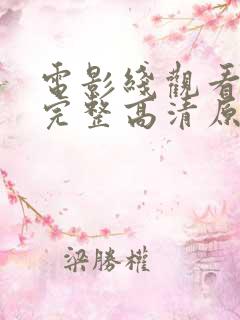 電影綫觀看
完整高清原
梁勝權